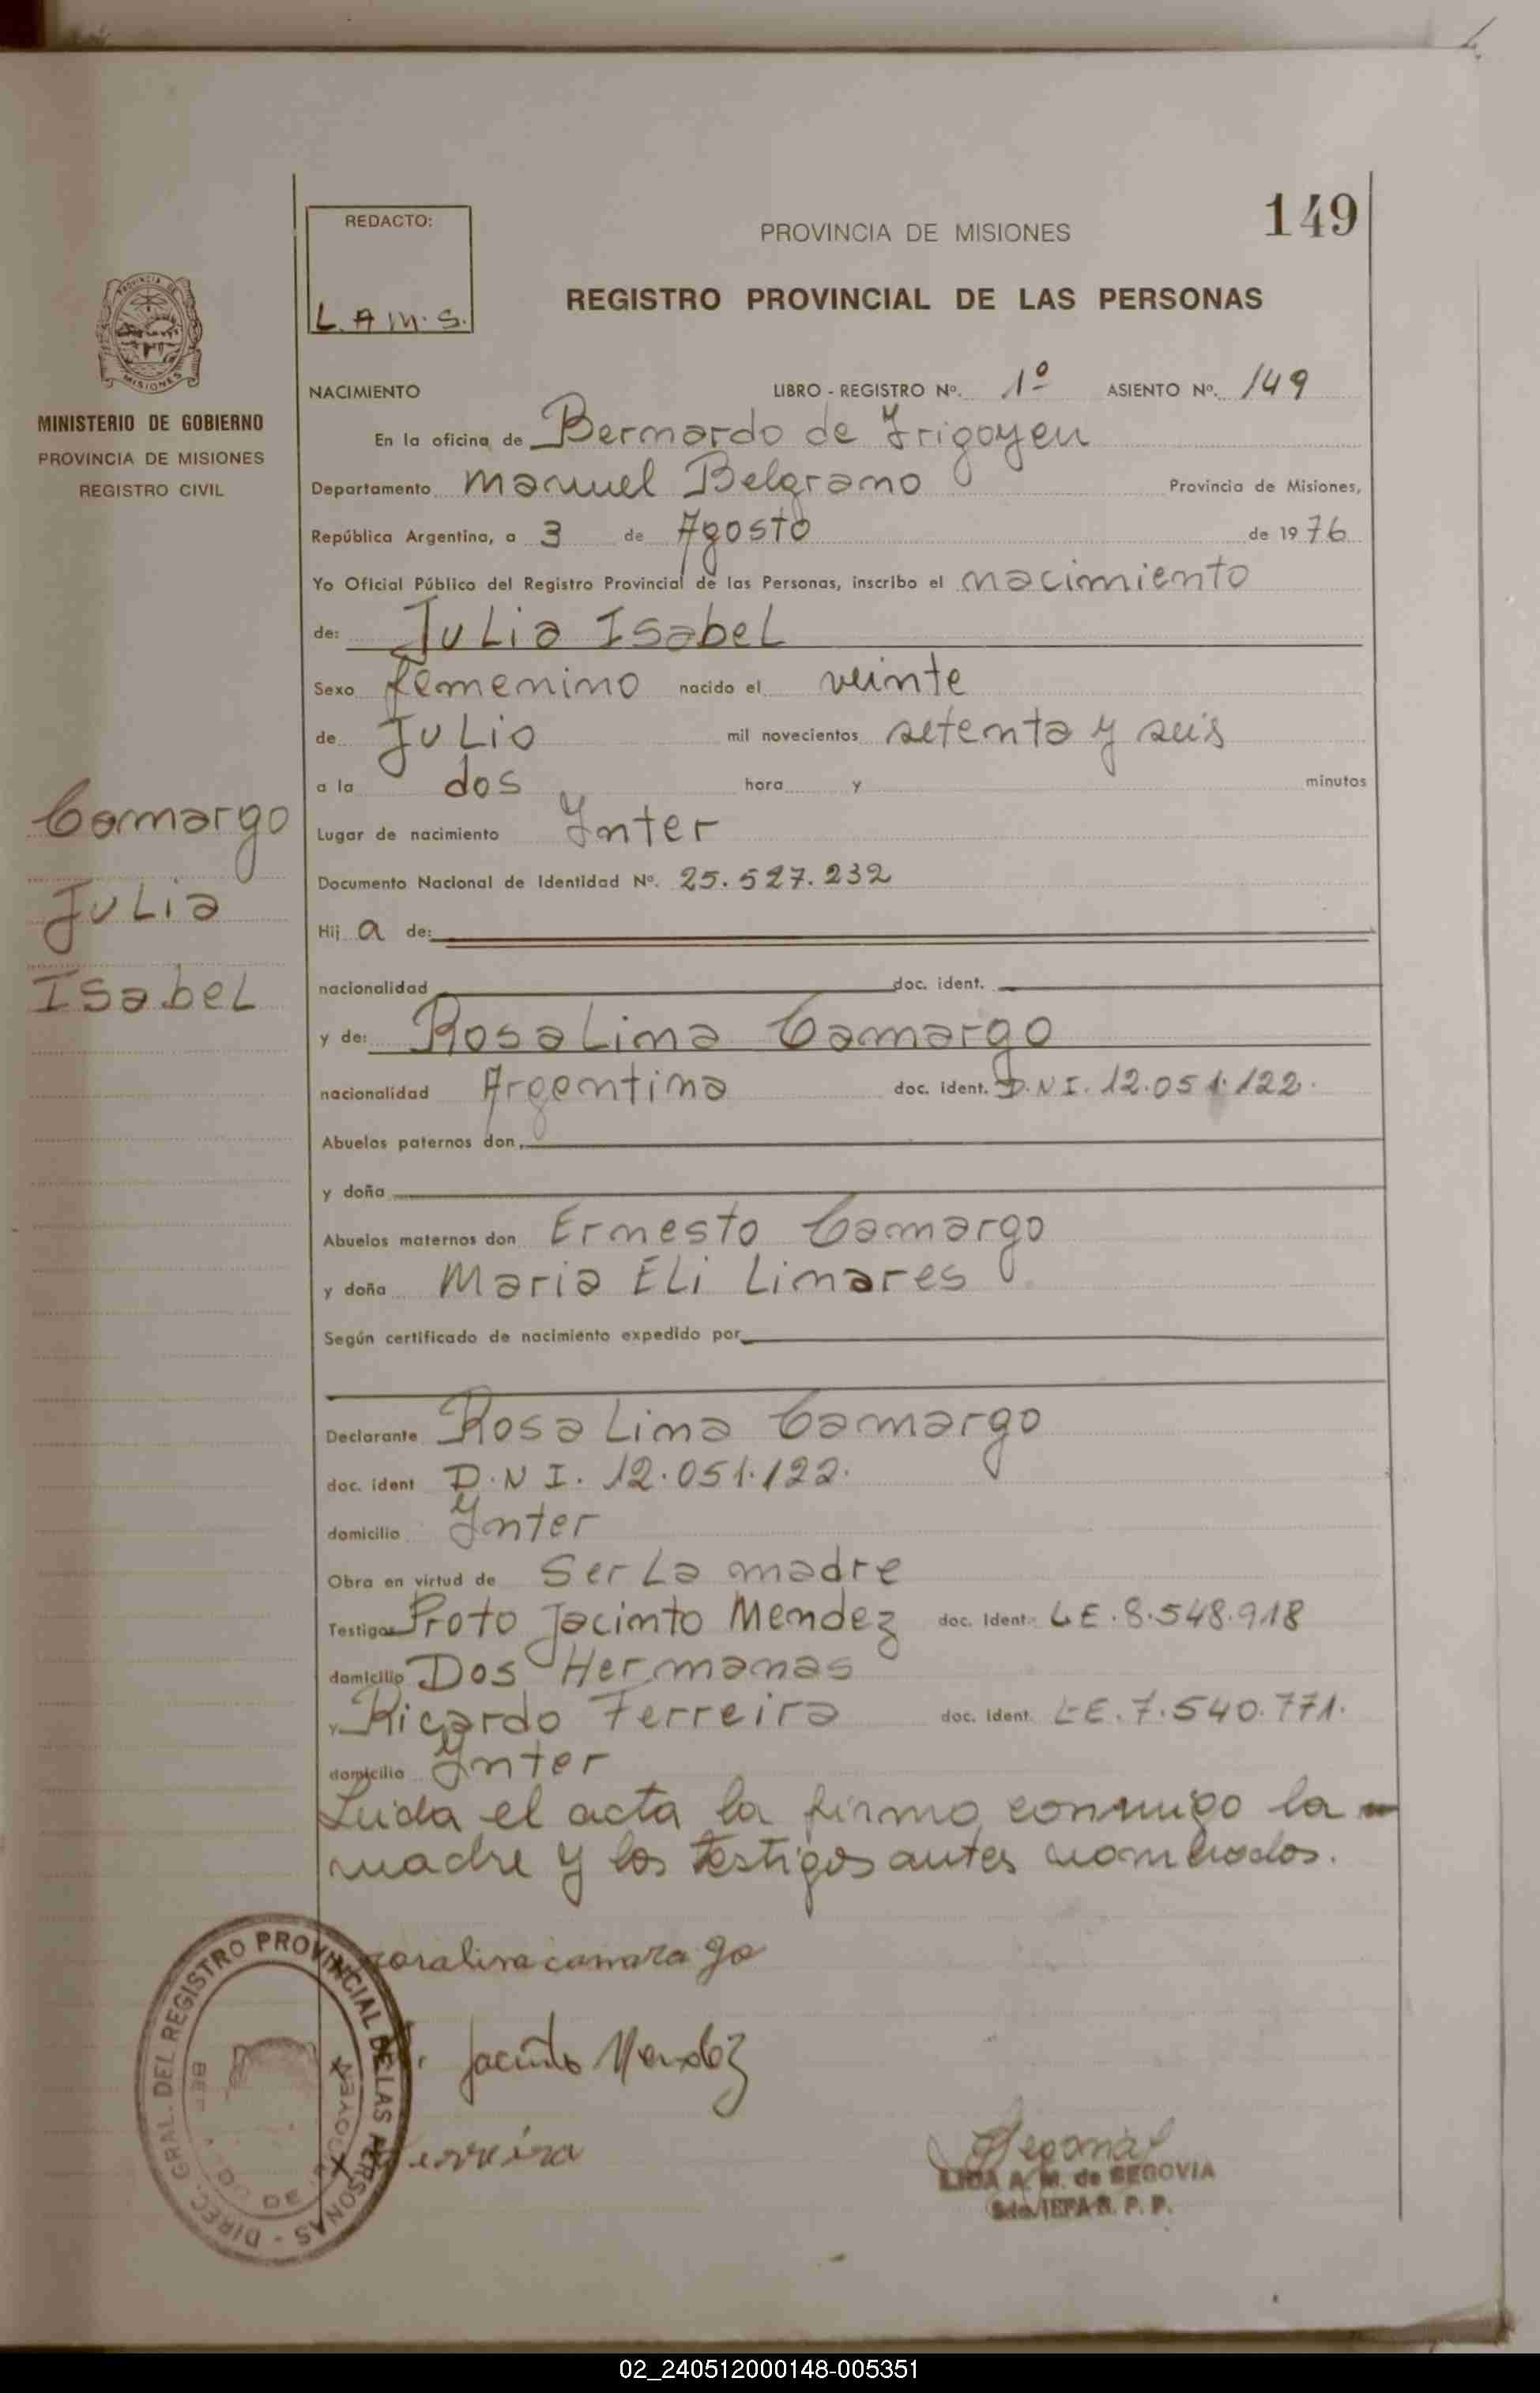 149
REDACTO:
L.A.M.S.
PROVINCIA DE MISIONES
REGISTRO PROVINCIAL DE LAS PERSONAS
MISIONES
MINISTERIO DE GOBIERNO
PROVINCIA DE MISIONES
REGISTRO CIVIL
NACIMIENTO LIBRO - REGISTRO Nº. 1º ASIENTO Nº. 149
En la oficina de Bernardo de Irigoyen
Departamento Manuel Belgrano Provincia de Misiones,
República Argentina, a 3 de Agosto de 1976
Yo Oficial Público del Registro Provincial de las Personas, inscribo el nacimiento
de: Julia Isabel
Sexo femenino nacido el veinte
de Julio mil novecientos setenta y seis
a la dos hora y minutos
Camargo
Julia
Isabel
Lugar de nacimiento Inter
Documento Nacional de Identidad Nº. 25.527.232
Hij a de:
nacionalidad doc. ident.
y de: Rosa Lina Camargo
nacionalidad Argentina doc. ident. D.N.I. 12.051.122.
Abuelos paternos don
y doña
Abuelos maternos don Ernesto Camargo
y doña Maria Eli Linares
Según certificado de nacimiento expedido por
Declarante Rosa Lina Camargo
doc. ident D.N.I. 12.051.122.
domicilio Inter
Obra en virtud de Ser La madre
Testigos Proto Jacinto Mendez doc. Ident. L.E. 8.548.918
domicilio Dos Hermanas
y Ricardo Ferreira doc. Ident. L.E. 7.540.771.
domicilio Inter
Leida el acta la firma conmigo la
madre y los testigos antes nombrados.
rosalina camargo
Jacinto Mendez
Ferreira
DIREC. GRAL. DEL REGISTRO PROVINCIAL DE LAS PERSONAS
LIDIA A. M. de SEGOVIA
R. P. P.
02_240512000148-005351